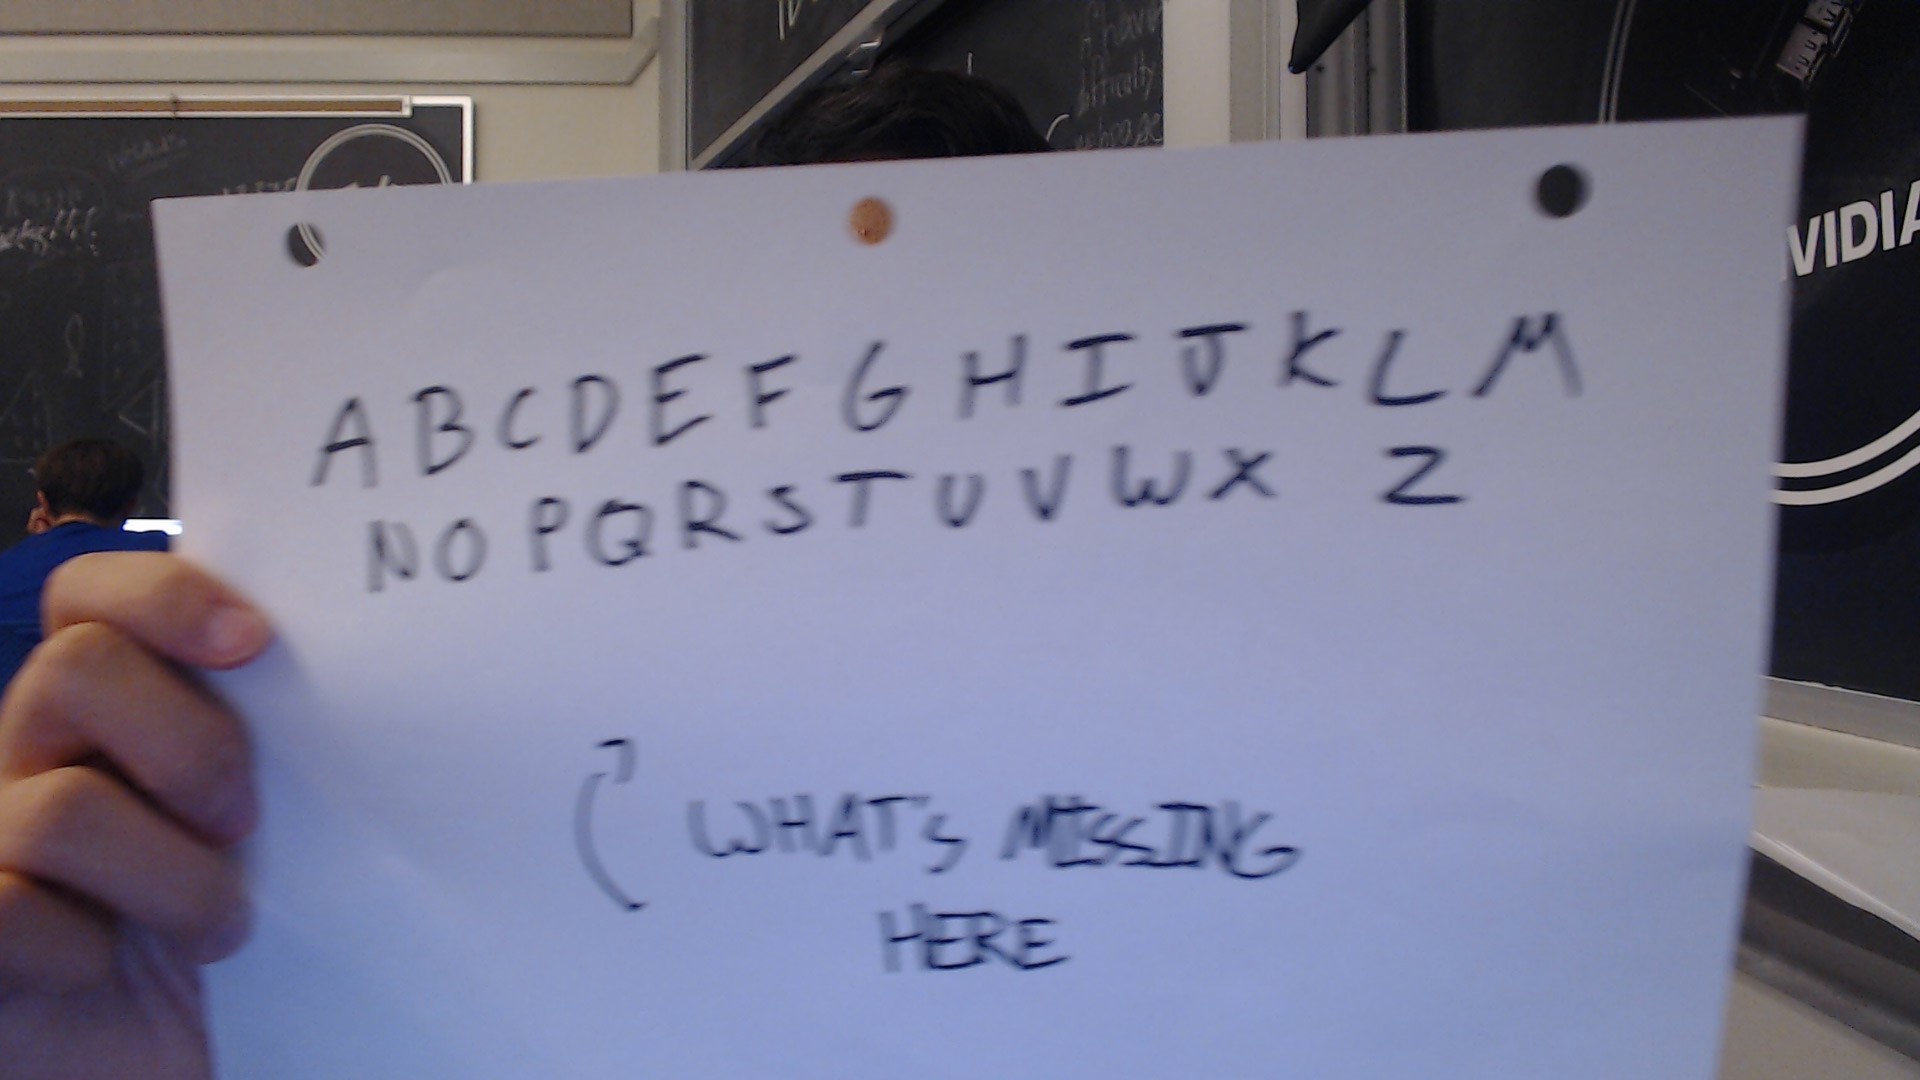 ffficulty
VIDIA
A B C D E F G H I J K L M
N O P Q R S T U V W X Z
WHAT'S MISSING
HERE